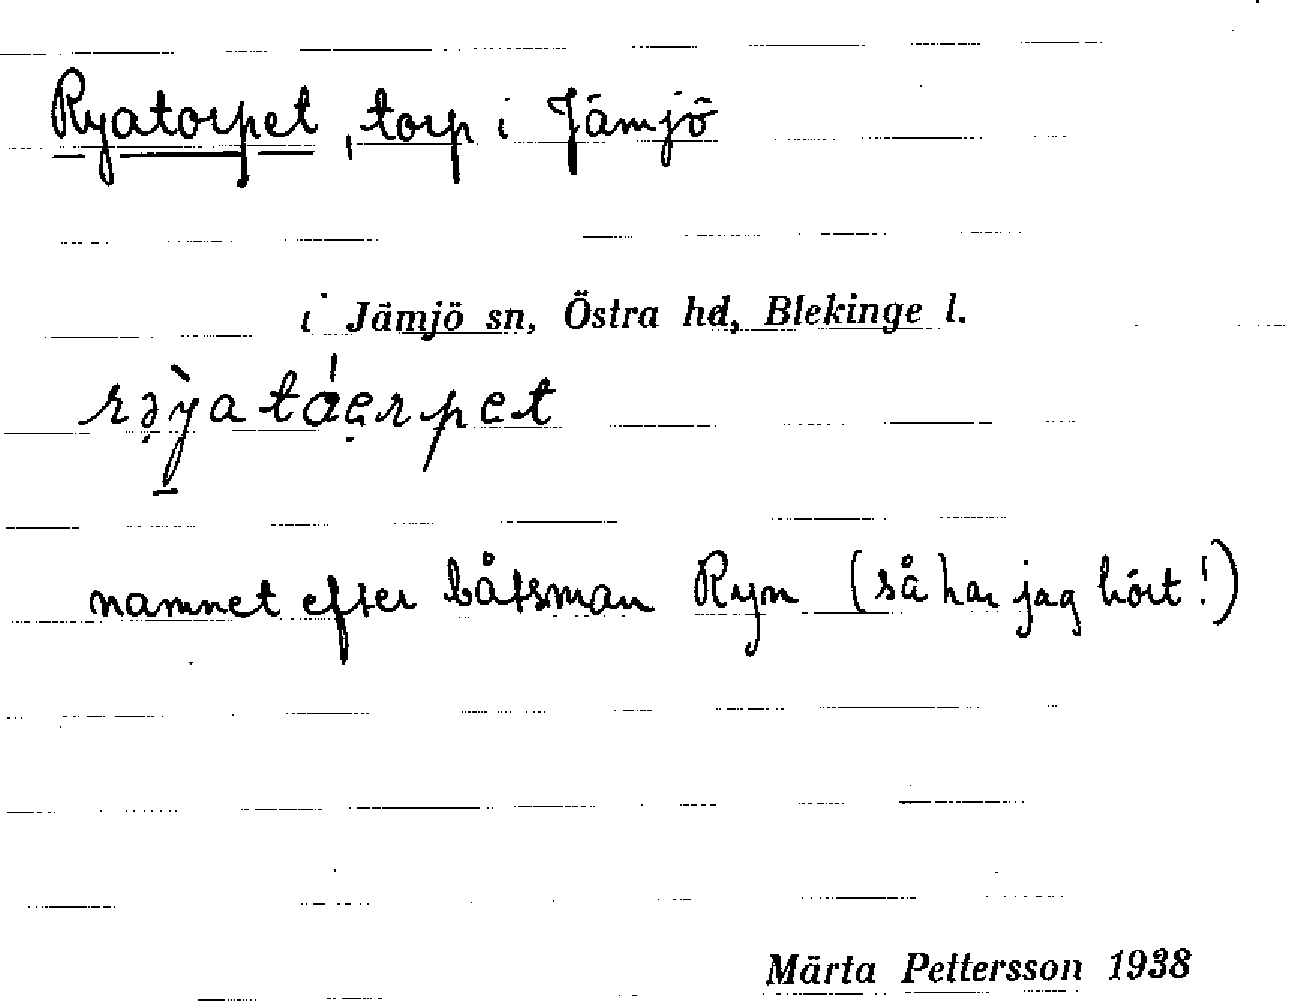 Ryatorpet, torp i Jämjö
i Jämjö sn, Östra hd, Blekinge l.
rə̣̀y̱atá̍ẹrpet
namnet efter båtsman Ryn (så har jag hört!)
Märta Pettersson 1938